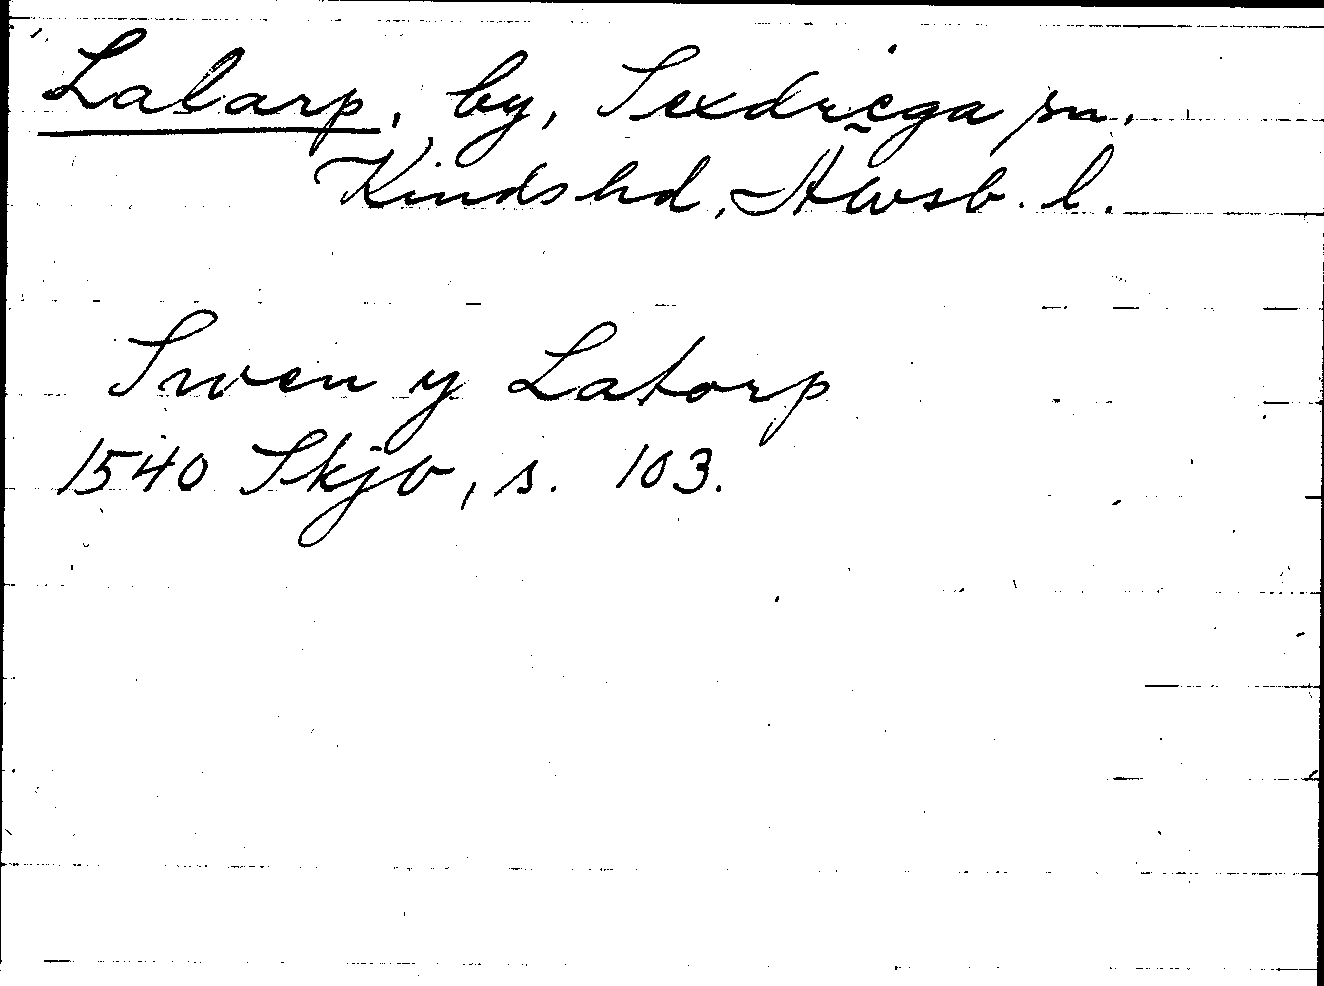 Lalarp, by, Sexdrega sn.
Kinds hd, Älvsb. l.
Swen y Latorp
1540 Skjb, s. 103.